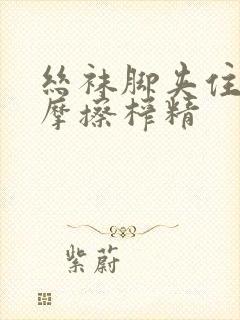 丝袜脚夹住
摩擦榨精
紫蔚